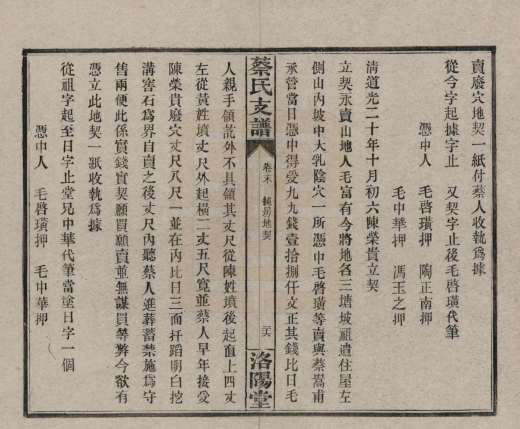 賣廢穴地契一紙付蔡人收執爲據
從今字起據字止　又契字止後毛啓璜代筆
憑中人　毛啓璜押　陶正南押
毛中華押　馮玉之押
清道光二十年十月初六陳榮貴立契
立契永賣山地人毛富有今將地名三塘坡祖遺住屋左
側山內坡中大乳陰穴一所憑中毛啓璜等賣與蔡嵩甫
承管當日憑中得受九九錢壹拾捌仟文正其錢比日毛
蔡氏支譜
卷末
純房地契
二六
洛陽堂
人親手領訖外不具領其丈尺從陳姓墳後起直上四丈
左從黃姓墳丈尺外起橫二丈五尺寬並蔡人早年接受
陳榮貴廢穴丈尺八尺一並在內比日三面扦蹈明白挖
溝窖石爲界自賣之後丈尺內聽蔡人進葬蓄禁施爲守
售兩便此係實錢實契願買願賣並無謀買等弊今欲有
憑立此地契一紙收執爲據
從祖字起至日字止堂兄中華代筆當塗日字一個
憑中人　毛啓璜押　毛中華押